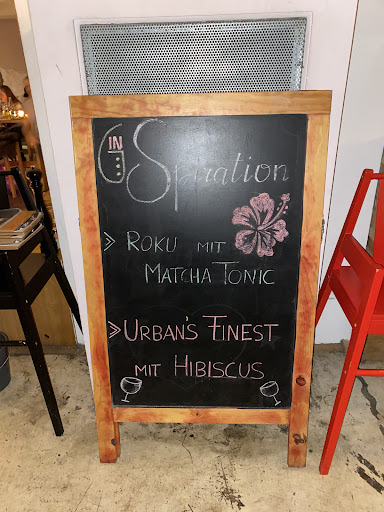 GINSpiration
» ROKU MIT
MATCHA TONIC
» URBAN'S FINEST
MIT HIBISCUS